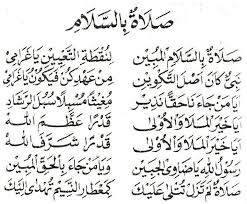 صَلَاةٌ بِالسَّلَامِ
صَلَاةٌ بِالسَّلَامِ الْمُبِيْنِ لِنُقْطَةِ التَّعْيِيْنِ يَاغَرَامِيْ
نَبِيٌّ كَانَ اَصْلَ التَّكْوِيْنِ مِنْ عَهْدِ كُنْ فَيَكُوْنُ يَاغَرَامِيْ
اَيَا مَنْ جَاءَنَا حَقًّا نَذِيْرٍ مُغِيْثًا مُسْبِلًا سُبُلَ الرَّشَادِ
اَيَا خَيْرَ الْمَلَا وَالْأُولٰى قَدْرًا عَظَّمَ اللهُ
اَيَا خَيْرَ الْمَلَا وَالْأُولٰى قَدْرًا شَرَّفَ اللهُ
رَسُوْلُ اللهِ يَاضَاوِى الْجَبِيْنِ وَيَا مَنْ جَاءَ بِالْحَقِّ الْمُبِيْنِ
صَلَاةٌ لَمْ تَزَلْ تُتْلٰى عَلَيْكَ كَمِعْطَارِ النَّسِيْمِ تُهْدٰى اِلَيْكَ